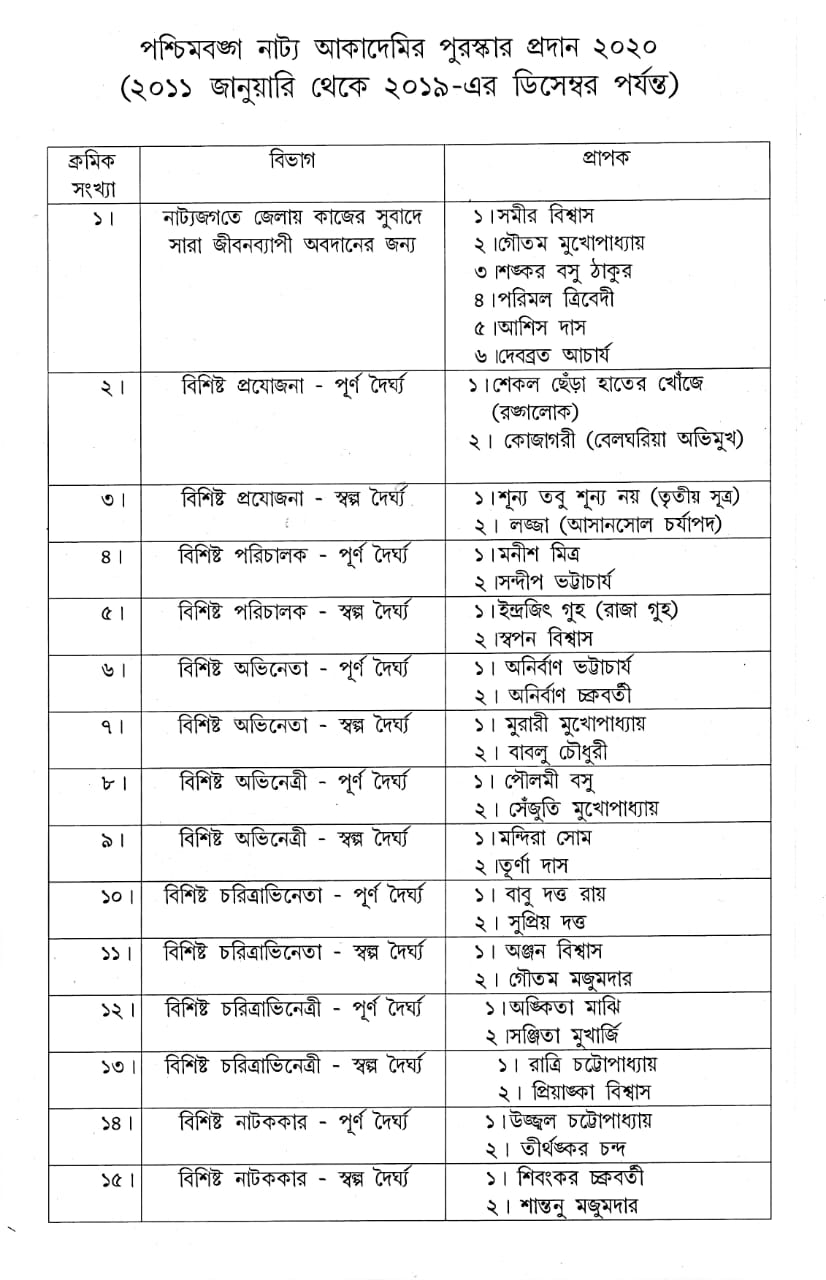 পশ্চিমবঙ্গ নাট্য আকাদেমির পুরস্কার প্রদান ২০২০
(২০১১ জানুয়ারি থেকে ২০১৯-এর ডিসেম্বর পর্যন্ত)
ক্রমিক সংখ্যা বিভাগ প্রাপক
১। নাট্যজগতে জেলায় কাজের সুবাদে ১।সমীর বিশ্বাস
সারা জীবনব্যাপী অবদানের জন্য ২।গৌতম মুখোপাধ্যায়
৩।শঙ্কর বসু ঠাকুর
৪।পরিমল ত্রিবেদী
৫।আশিস দাস
৬।দেবব্রত আচার্য
২। বিশিষ্ট প্রযোজনা - পূর্ণ দৈর্ঘ্য ১।শেকল ছেঁড়া হাতের খোঁজে
(রঙ্গালোক)
২। কোজাগরী (বেলঘরিয়া অভিমুখ)
৩। বিশিষ্ট প্রযোজনা - স্বল্প দৈর্ঘ্য ১।শূন্য তবু শূন্য নয় (তৃতীয় সূত্র)
২। লজ্জা (আসানসোল চর্যাপদ)
৪। বিশিষ্ট পরিচালক - পূর্ণ দৈর্ঘ্য ১।মনীশ মিত্র
২।সন্দীপ ভট্টাচার্য
৫। বিশিষ্ট পরিচালক - স্বল্প দৈর্ঘ্য ১।ইন্দ্রজিৎ গুহ (রাজা গুহ)
২।স্বপন বিশ্বাস
৬। বিশিষ্ট অভিনেতা - পূর্ণ দৈর্ঘ্য ১। অনির্বাণ ভট্টাচার্য
২। অনির্বাণ চক্রবর্তী
৭। বিশিষ্ট অভিনেতা - স্বল্প দৈর্ঘ্য ১। মুরারী মুখোপাধ্যায়
২। বাবলু চৌধুরী
৮। বিশিষ্ট অভিনেত্রী - পূর্ণ দৈর্ঘ্য ১। পৌলমী বসু
২। সেঁজুতি মুখোপাধ্যায়
৯। বিশিষ্ট অভিনেত্রী - স্বল্প দৈর্ঘ্য ১।মন্দিরা সোম
২।তূর্ণা দাস
১০। বিশিষ্ট চরিত্রাভিনেতা - পূর্ণ দৈর্ঘ্য ১। বাবু দত্ত রায়
২। সুপ্রিয় দত্ত
১১। বিশিষ্ট চরিত্রাভিনেতা - স্বল্প দৈর্ঘ্য ১। অঞ্জন বিশ্বাস
২। গৌতম মজুমদার
১২। বিশিষ্ট চরিত্রাভিনেত্রী - পূর্ণ দৈর্ঘ্য ১।অঙ্কিতা মাঝি
২।সঞ্জিতা মুখার্জি
১৩। বিশিষ্ট চরিত্রাভিনেত্রী - স্বল্প দৈর্ঘ্য ১। রাত্রি চট্টোপাধ্যায়
২। প্রিয়াঙ্কা বিশ্বাস
১৪। বিশিষ্ট নাটককার - পূর্ণ দৈর্ঘ্য ১।উজ্জ্বল চট্টোপাধ্যায়
২। তীর্থঙ্কর চন্দ
১৫। বিশিষ্ট নাটককার - স্বল্প দৈর্ঘ্য ১। শিবংকর চক্রবর্তী
২। শান্তনু মজুমদার